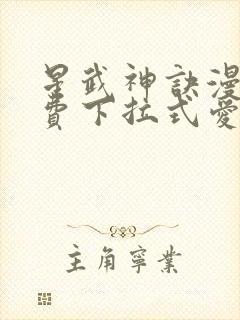 星武神訣漫
費下拉式愛
主角寧業